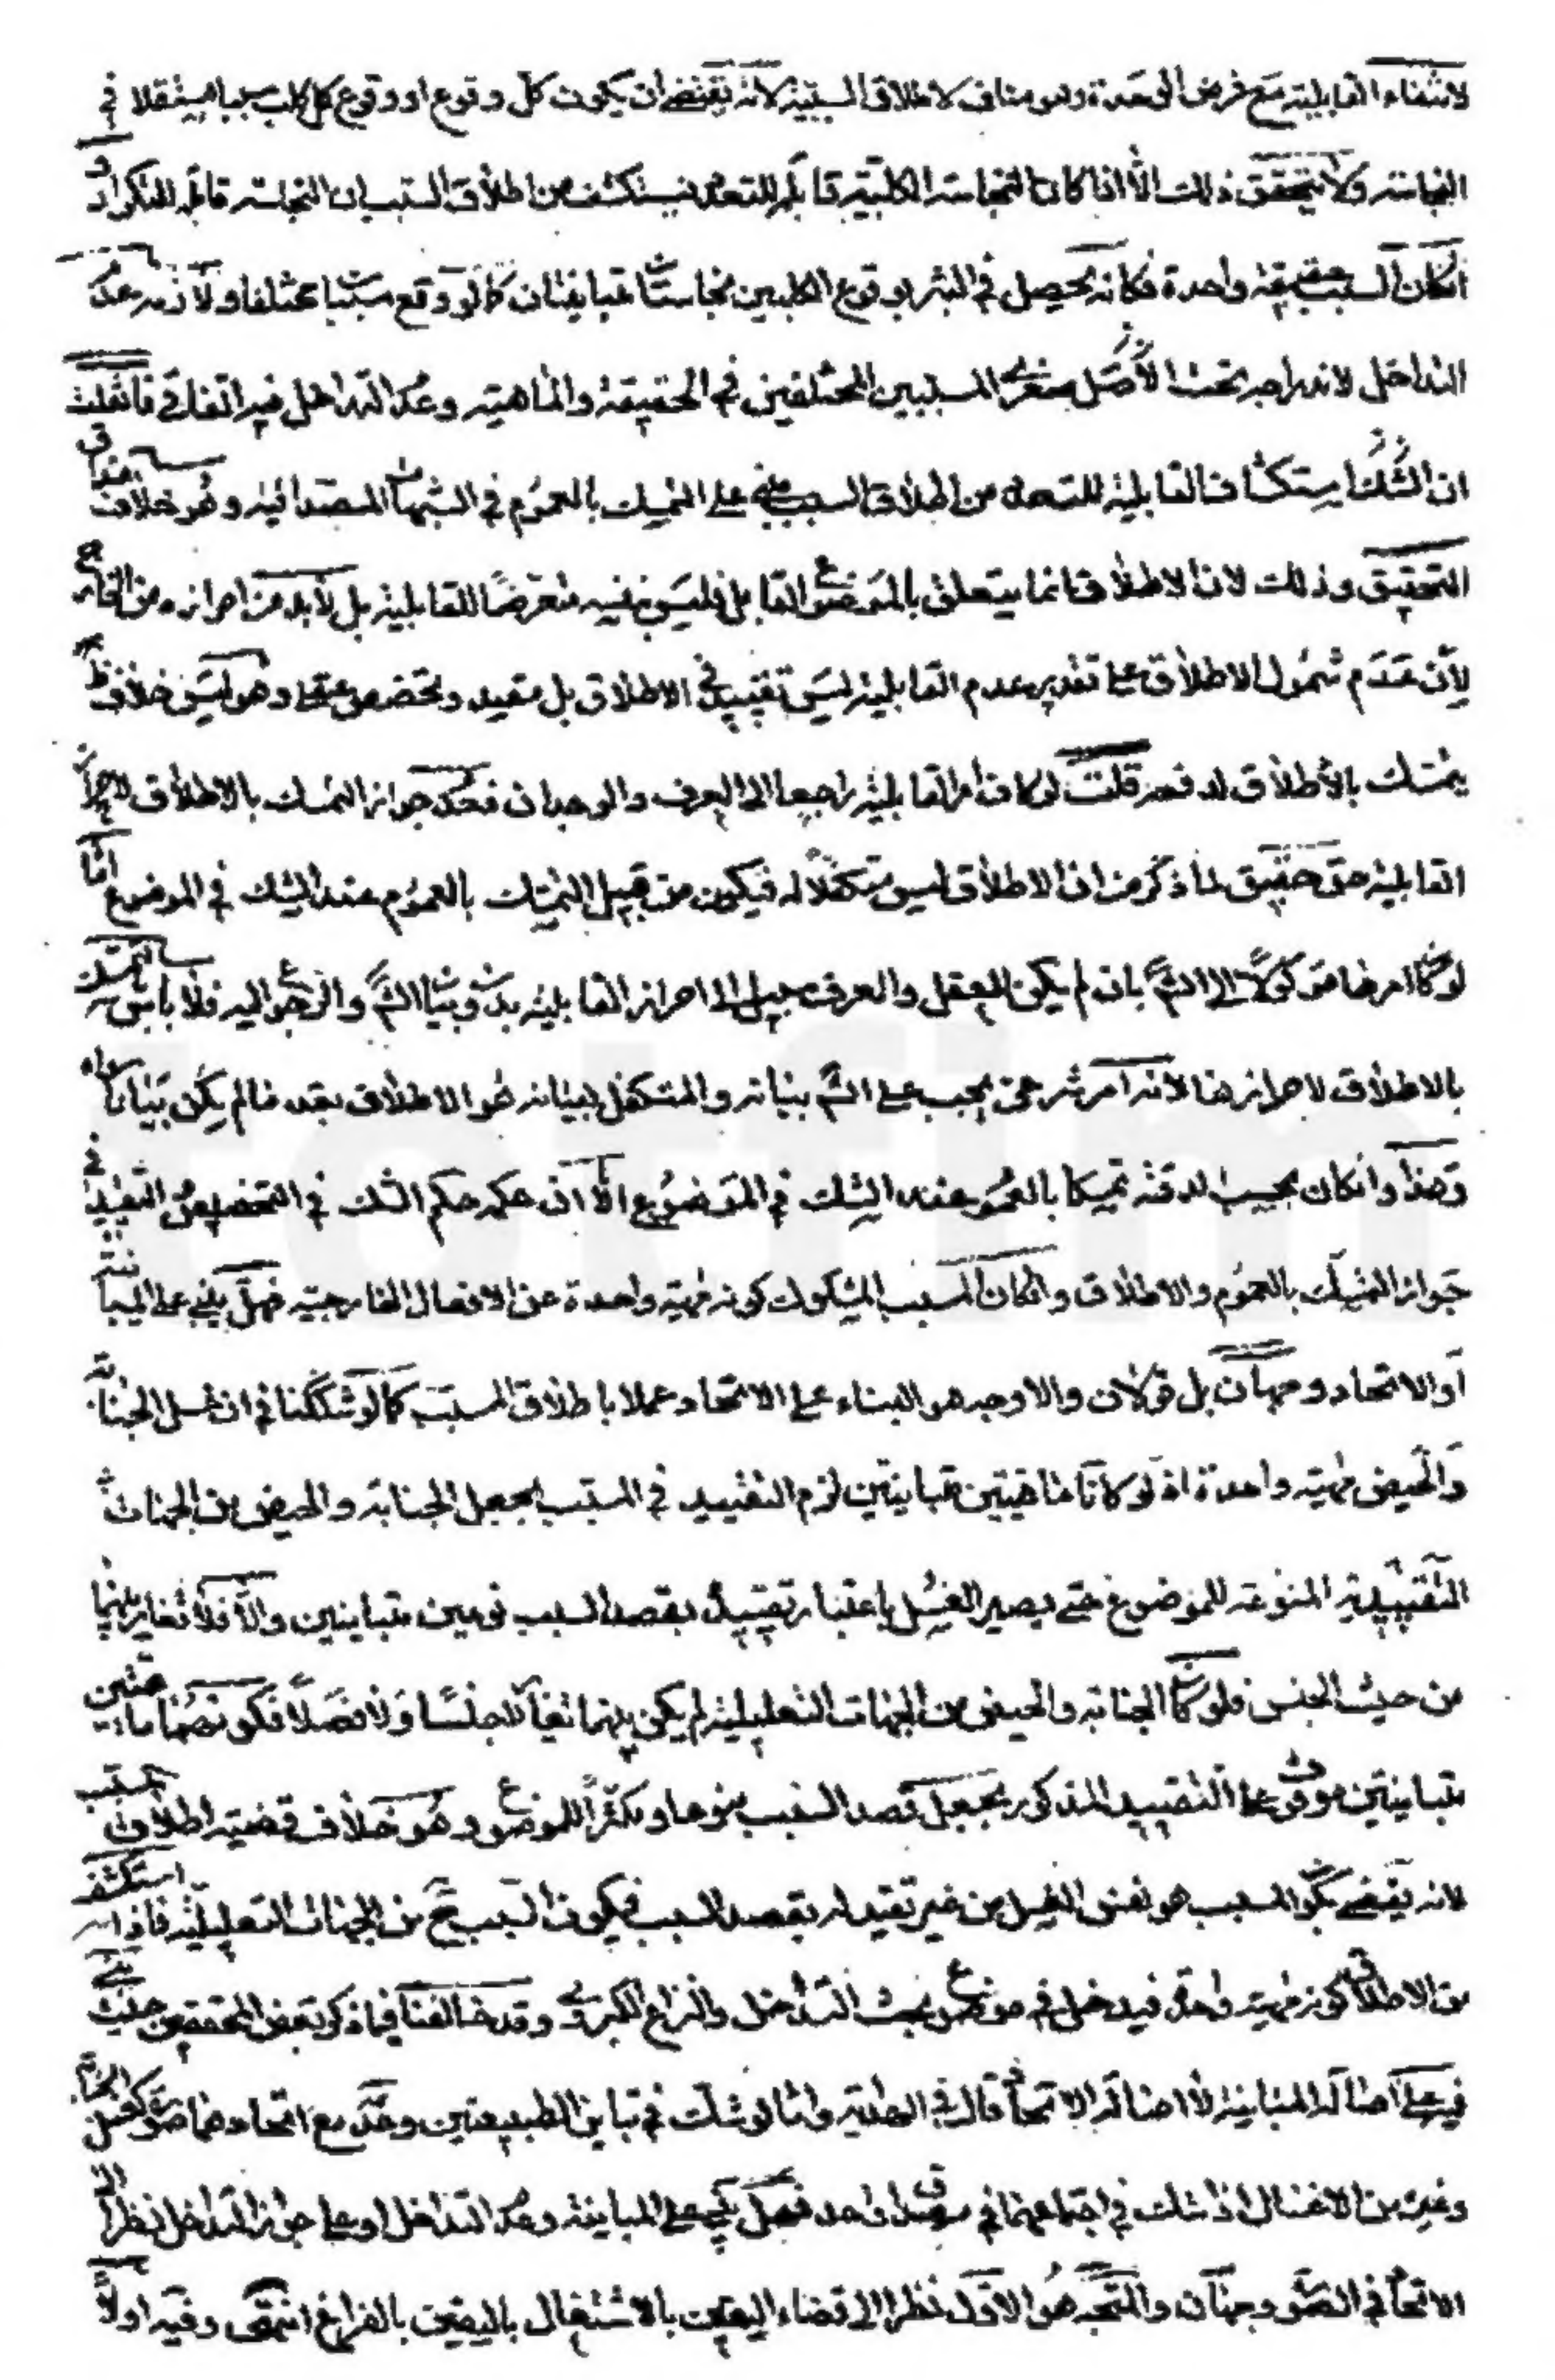 لانتفاء القابلية مع فرض الوحدة وهو مناف لاطلاق السببية لانه يقتضى ان يكون كل وقوع او وقوع كل كلب سببا مستقلا فى
النجاسة ولا يتحقق ذلك الا اذا كان النجاسة الكلبية قابلة للتعدد فيستكشف من اطلاق السبب ان النجاسة قابلة للتكرار و
انكان السبب حقيقة واحدة فكانه يحصل فى البئر بوقوع الكلبين نجاستا متباينتان كما لو وقع سببا مختلفا ولازمه عدم
التداخل لاندراجه تحت الاصل صغرى المسببين المختلفين فى الحقيقة والماهية وعدم التداخل فيه اتفاقى فان قلت
ان استكشاف القابلية للتعدد من اطلاق السبب مبنى على التمسك بالعموم فى الشبهات المصداقية وهو خلاف
التحقيق وذلك لان الاطلاق انما يتعلق بالموضوع القابل فليس بنفسه متعرضا للقابلية بل لابد من احرازه من الخارج
لان عدم شمول الاطلاق على تقدير عدم القابلية ليس تقييد فى الاطلاق بل مقيد وتخصص عقلى وهو ليس خلاف
يتمسك بالاطلاق لدفعه قلت لو كان امر القابلية راجعا الى العرف والوجدان فعدم جواز التمسك بالاطلاق لاحراز
القابلية حق حقيق لما ذكر من ان الاطلاق ليس متكفلا له فيكون من قبيل التمسك بالعموم عند الشك فى الموضوع اما
لو كان امرها موكولا الى الشرع بان لم يكن للعقل والعرف سبيل الى احراز القابلية بدون بيان الشرع والرجوع اليه فلا باس بالتمسك
بالاطلاق لاحرازها لانه امر شرعى يجب على الشرع بيانه والمتكفل لبيانه هو الاطلاق بعد ما لم يكن بيان سواه
وهذا وانكان بحسب الدقة تمسكا بالعموم عند الشك فى الموضوع الا ان حكمه حكم الشك فى التخصيص والتقييد فى
جواز التمسك بالعموم والاطلاق وانكان المسبب المشكوك كونه مهية واحدة عن الافعال الخارجية فهل يبنى على المباينة
او الاتحاد وجهان بل قولان والاوجه هو البناء على الاتحاد عملا باطلاق المسبب كما لو شككنا فى ان غسل الجنابة
والحيض مهية واحدة اذ لو كانا ماهيتين متباينتين لزم التقييد فى المسبب بجعل الجنابة والحيض من الجهات
التقييدية المنوعة للموضوع حتى يصير الغسل باعتبار تقييده بقصد السبب نوعين متباينين والا فلا تغاير بينهما
من حيث الجنس فلو كان الجنابة والحيض من الجهات التعليلية لم يكن بينهما تغاير لا جنسا ولا فصلا فكونهما ماهيتين
متباينتين موقوف على التقييد المذكور بجعل قصد السبب منوعا ومكثرا للموضوع وهو خلاف قضية اطلاق المسبب
لانه يقتضى بكون المسبب هو نفس الغسل من غير تقييد له بقصد السبب فيكون السبب ح من الجهات التعليلية فاذا استكشف
من الاطلاق كونه مهية واحدة فيدخل فى موضوع بحث التداخل والنزاع الكبروى وقد خالفنا فيما ذكر بعض المحققين حيث بنى
فيه على اصالة المباينة لا اصالة الاتحاد قال فى الهداية واما لو شك فى تباين الطبيعتين وعدمه مع اتحادهما صورة كغسل الجنابة
وغيره من الاغسال اذا شك فى اجتماعهما فى مصداق واحد فهل يبنى على المباينة وعدم التداخل او على جواز التداخل نظرا الى
الاتحاد فى الصورة وجهان والمتجه هو الاول نظرا الى قضاء اليقين بالاشتغال باليقين بالفراغ انتهى وفيه اولا